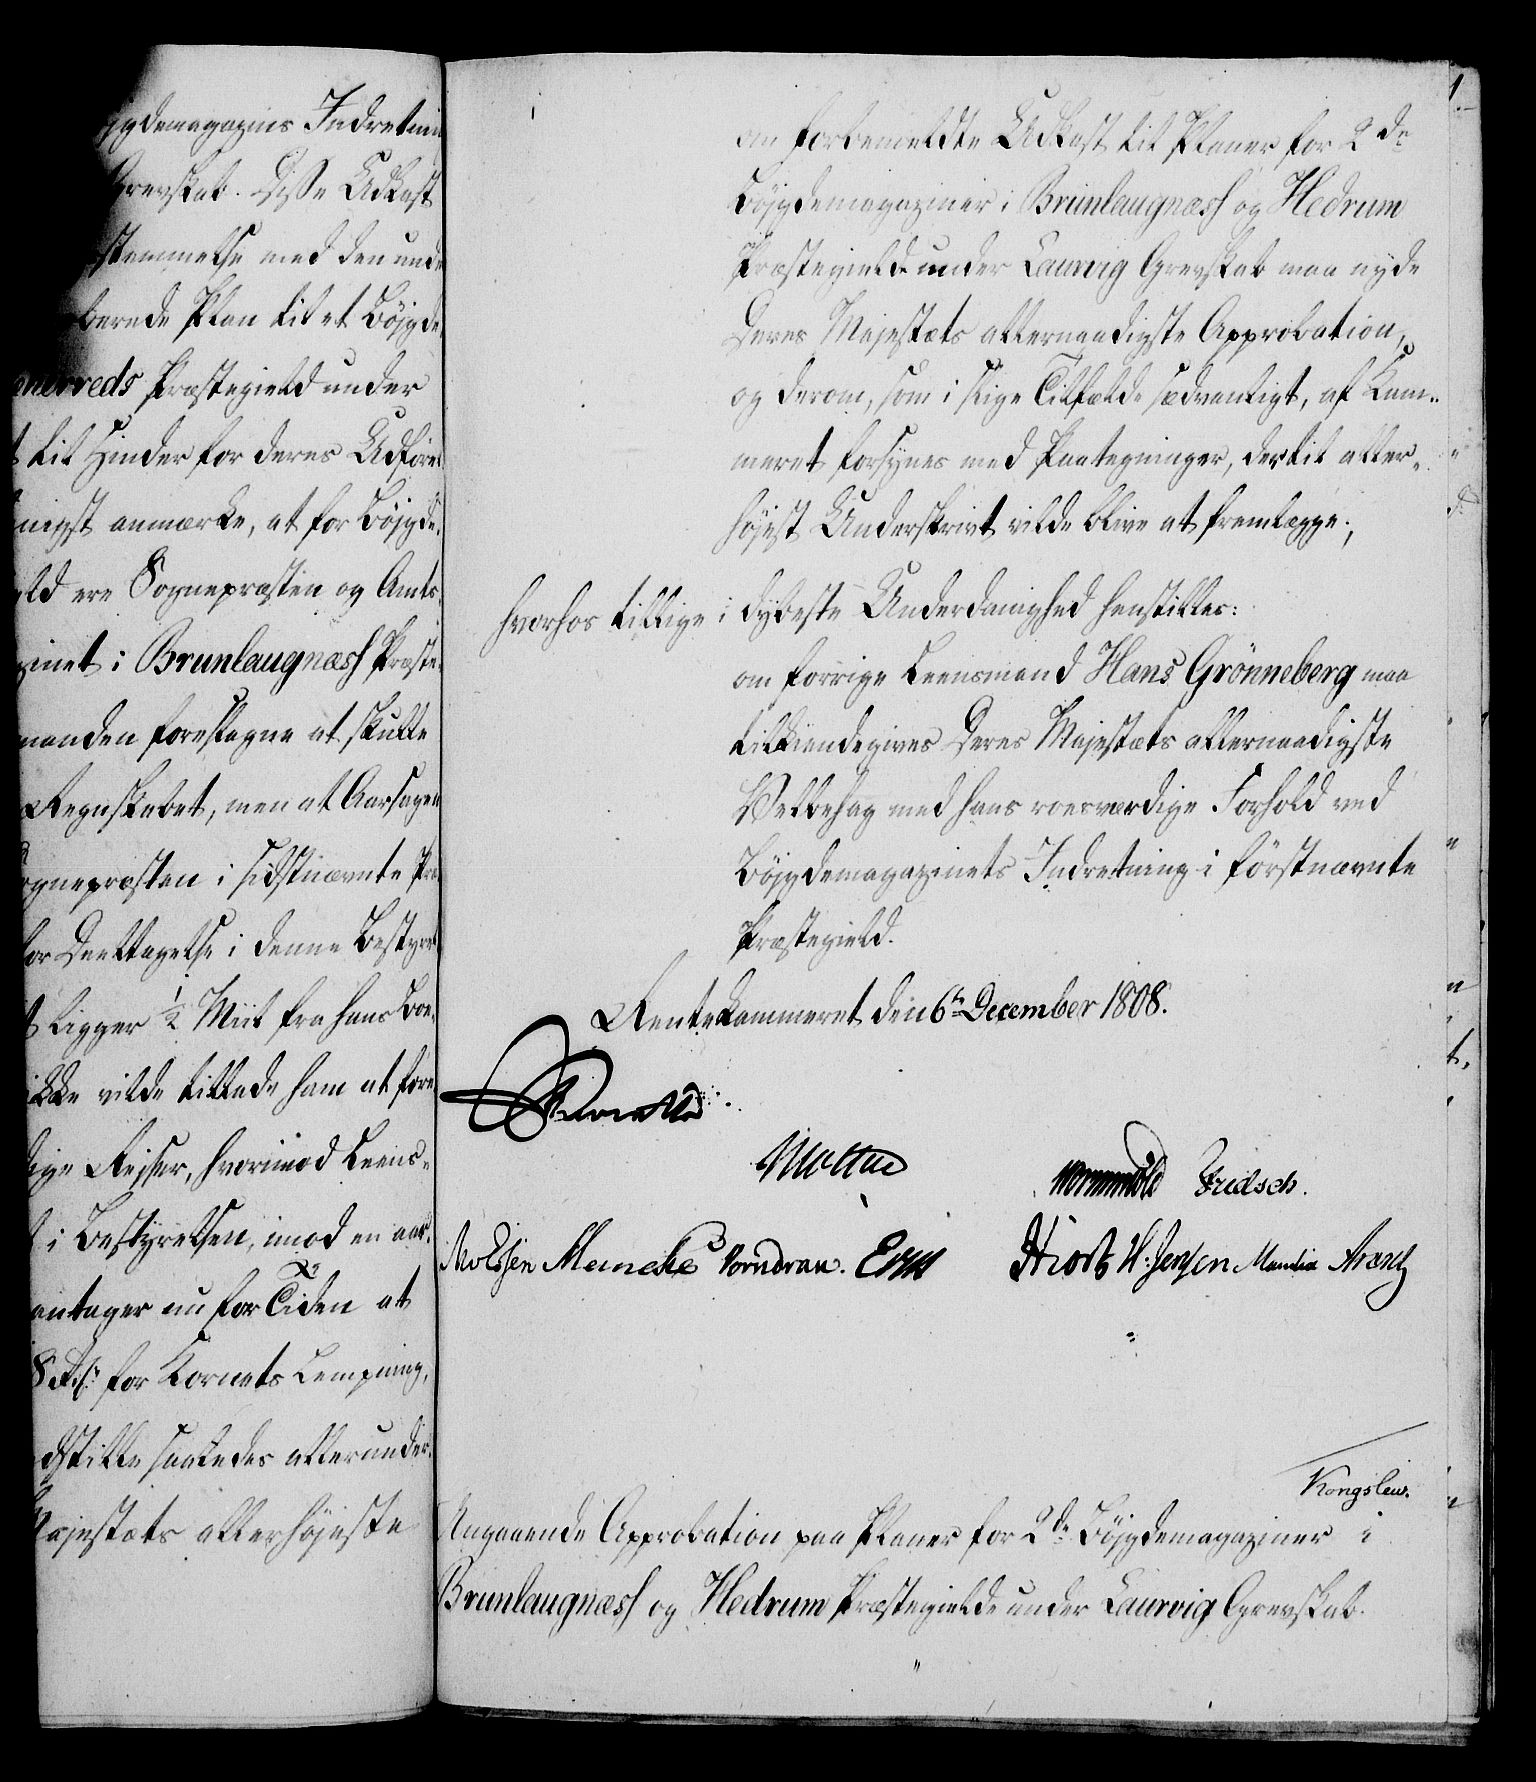 ygdemagazins Indretnin
Grevskab. Disse Udkast
stemmelse med den unde
berede Plan til et Böjgde
Præstegield under
til Hinder for deres Udföre
nigst anmærke, at for Böjgde
ld ere Sognepræsten og Amts
zinet i Brunlaugnæsh Præste
manden foreslagne at skulle
Regnskabet, men at Aarsagen
ognepræsten i sidstnævnte Præ
for Deeltagelse i denne Bestyrel
t ligger ½ Miil fra hans Boe
ikke vilde tillade ham at fore
lige Reiser, hvorimod Leens-
i Bestyrelsen, imod en aar
antager nu for Tiden at
for Kornets Lempning,
dstille saaledes allerunder
Majestæts allerhöjeste
om forbemeldte Udkast til Planer for 2de
Böjgdemagaziner i Brunlaugnæsh og Hedrum
Præstegielde under Laurvig Grevskab maa nyde
Deres Majestæts allernaadigste Approbation,
og derom, som i slige Tilfælde sædvanligt, af Kam-
meret forsynes med Paategninger, der til aller-
höjest Underskrivt vilde blive at fremlægge;
hvorhos tillige i dybeste Underdanighed henstilles:
om forrige Leensmand Hans Grönneberg maa
tilkiendegives Deres Majestæts allernaadigste
Velbehag med hans roesværdige Forhold ved
Böjgdemagazinets Indretning i förstnævnte
Præstegield.
Rentekammeret den 6te December 1808.
Wormskiold Fridsch.
Meincke Vorndran. Hiort W. Jensen Arentz
Kongslew.
Angaaende Approbation paa Planer for 2de Böjgdemagaziner i
Brunlaugnæsh og Hedrum Præstegielde under Laurvig Grevskab.